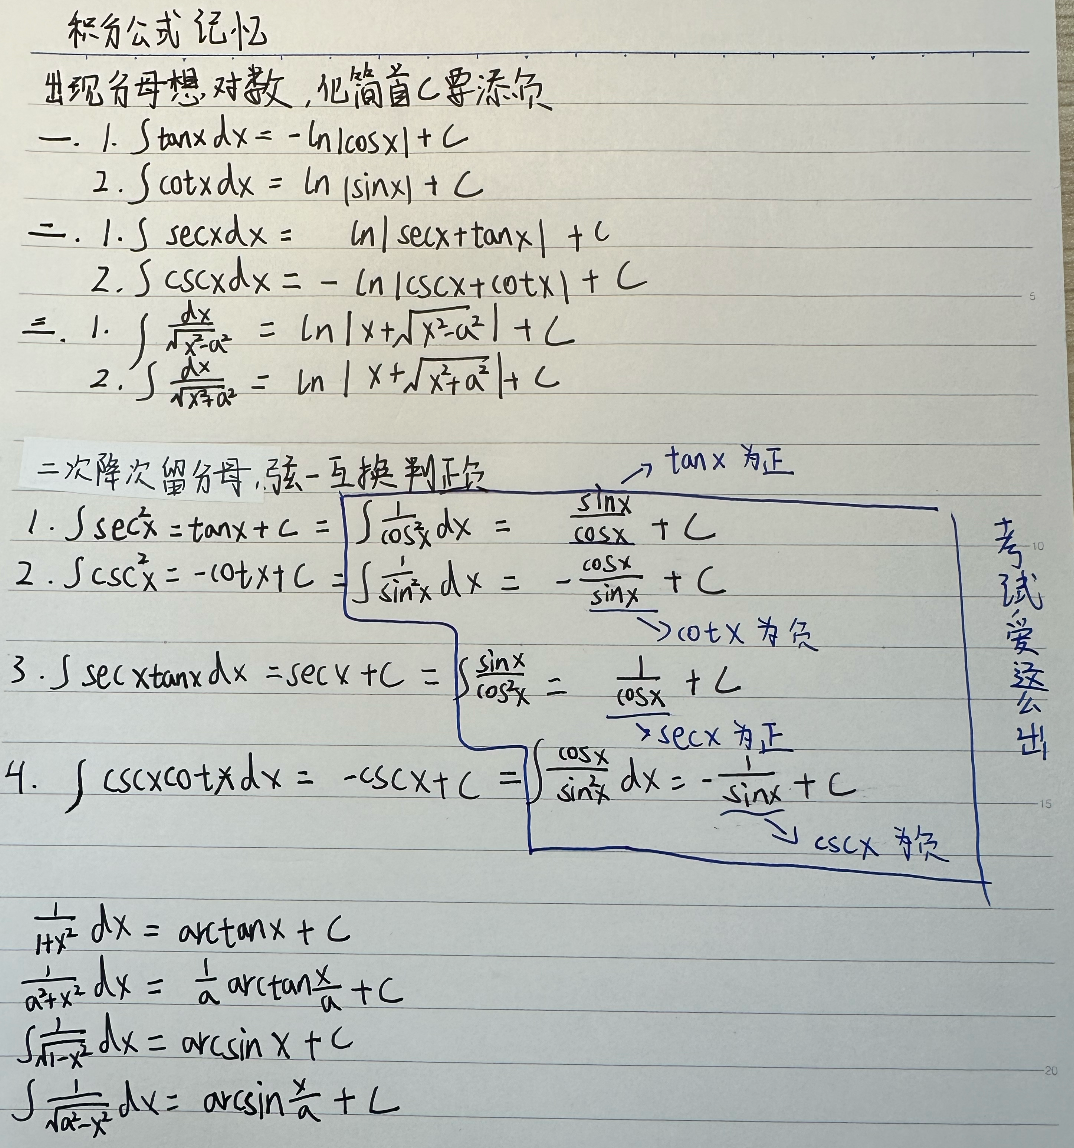 积分公式记忆
出现分母想对数,化简首C要添负
一. 1. ∫tanxdx = -ln|cosx| + C
2. ∫cotxdx = ln|sinx| + C
二. 1. ∫secxdx = ln|secx+tanx| + C
2. ∫cscxdx = - ln|cscx+cotx| + C
三. 1. ∫dx/√(x²-a²) = ln|x+√(x²-a²)| + C
2. ∫dx/√(x²+a²) = ln|x+√(x²+a²)| + C
二次降次留分母,弦一互换判正负
→ tanx 为正
1. ∫sec²x = tanx + C = ∫1/cos²x dx = sinx/cosx + C
2. ∫csc²x = -cotx + C = ∫1/sin²x dx = -cosx/sinx + C
→ cotx 为负
3. ∫secxtanxdx = secx + C = ∫sinx/cos²x = 1/cosx + C
→ secx 为正
4. ∫cscxcotxdx = -cscx + C = ∫cosx/sin²x dx = -1/sinx + C
→ cscx 为负
考试爱这么出
1/(1+x²) dx = arctanx + C
1/(a²+x²) dx = 1/a arctan x/a + C
∫1/√(1-x²) dx = arcsinx + C
∫1/√(a²-x²) dx = arcsin x/a + C
5
10
15
20